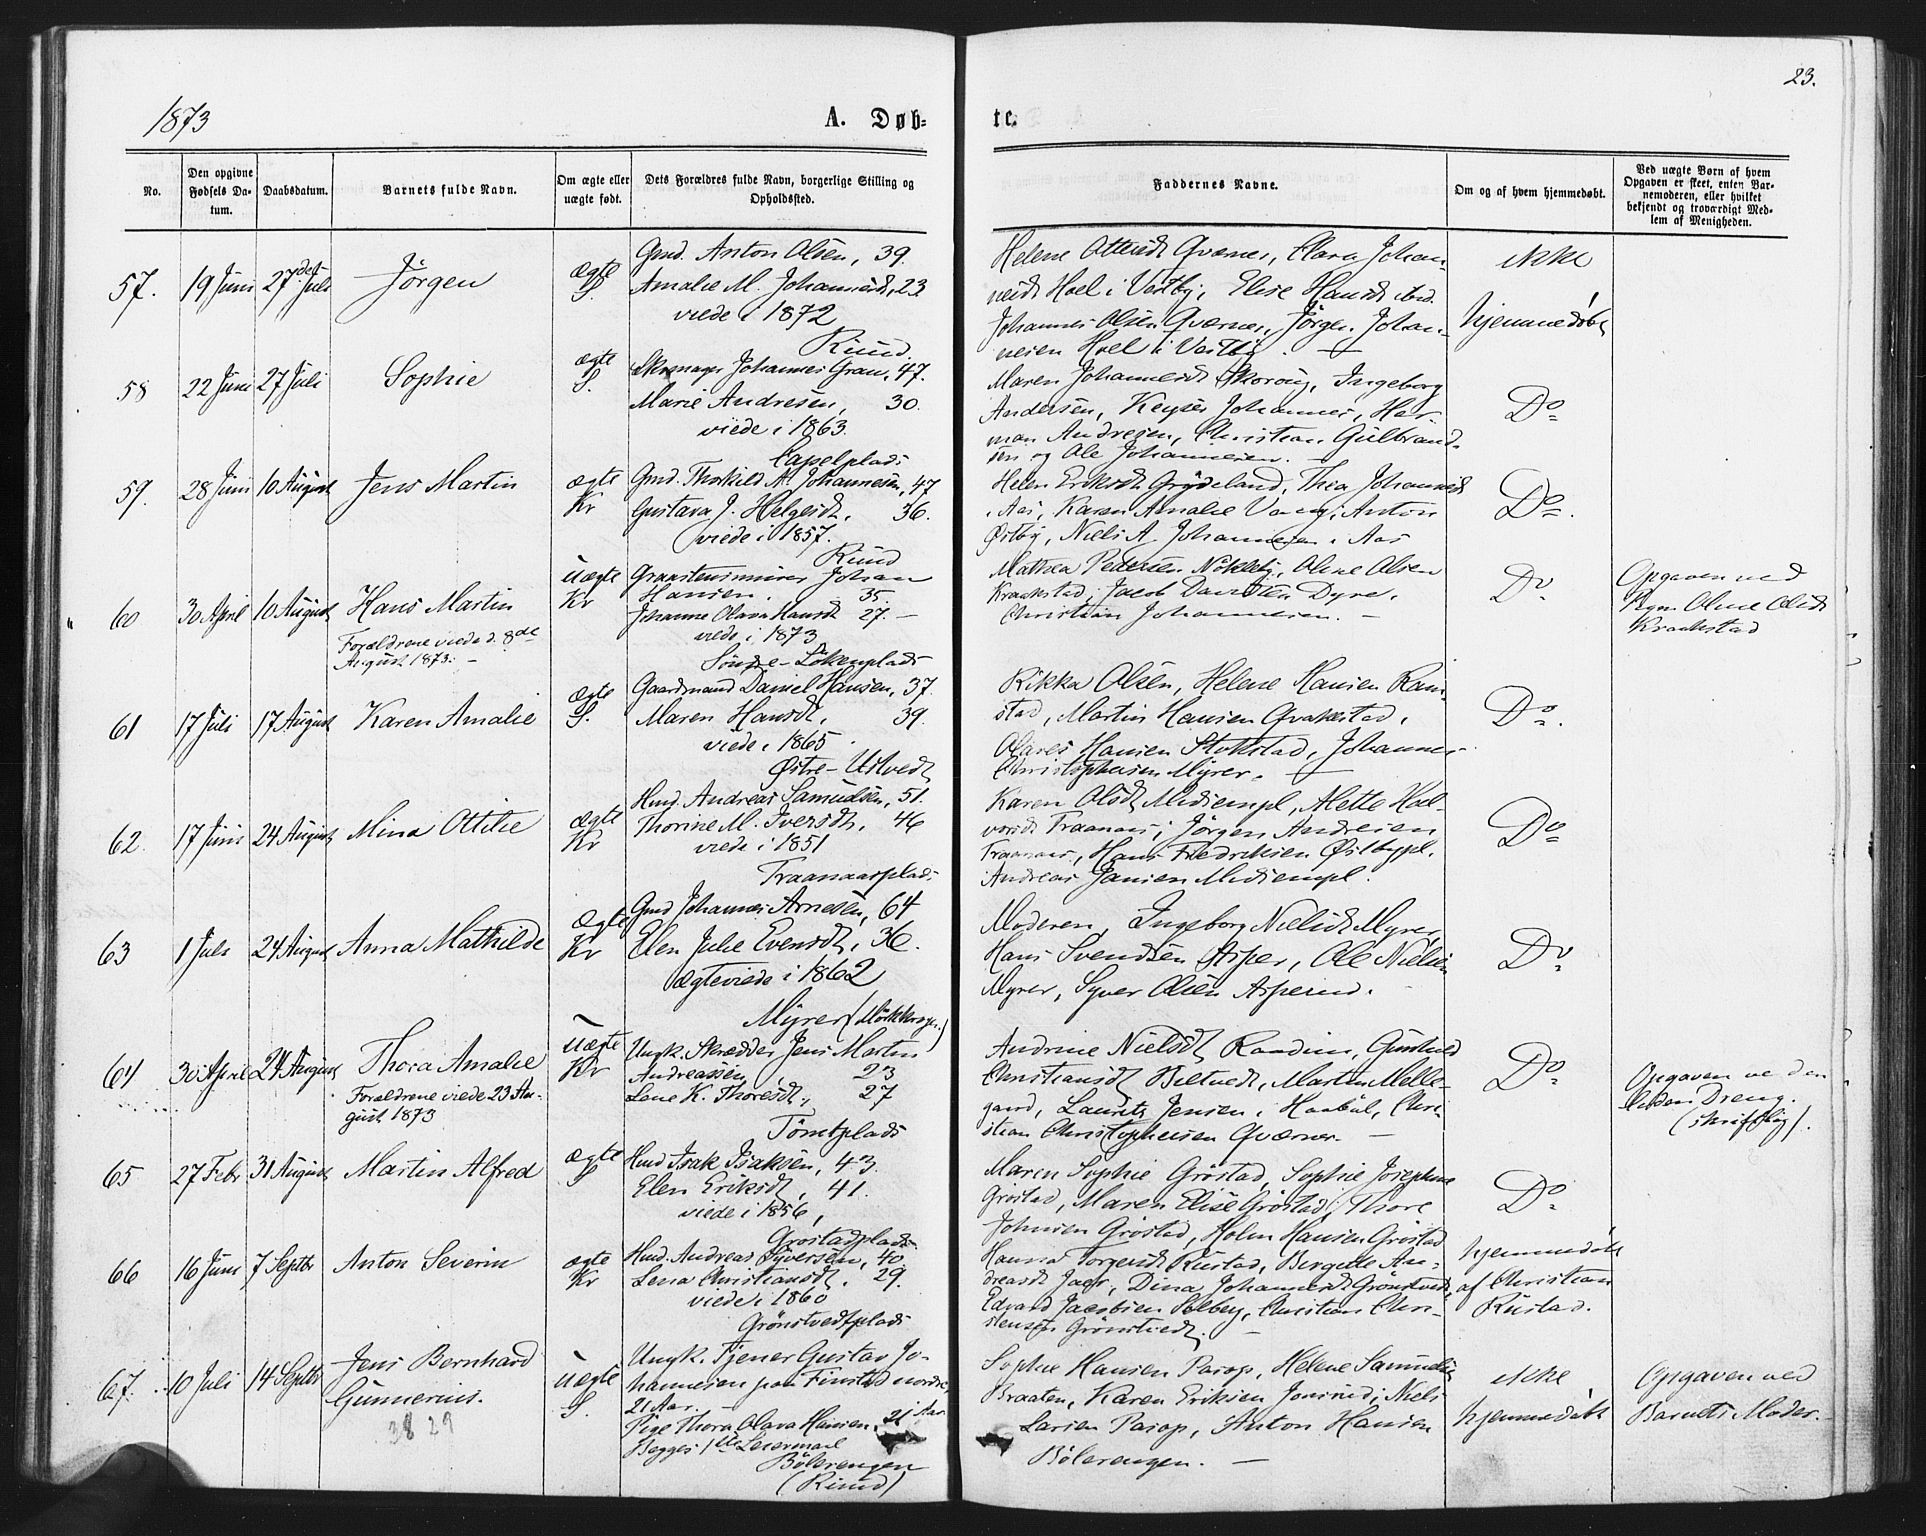 23.
1873
A. Døb-
te.
No.
Den opgivne
Fødsels Da-
tum.
Daabsdatum.
Barnets fulde Navn.
Om ægte eller
uægte født.
Dets Forældres fulde Navn, borgerlige Stilling og
Opholdssted.
Faddernes Navne.
Om og af hvem hjemmedøbt.
Ved uægte Børn af hvem
Opgaven er skeet, enten Bar-
nemoderen, eller hvilket
bekjendt og troværdigt Med-
lem af Menigheden.
57. 19 Juni 27de Juli Jörgen
ægte
S.
Gmd. Anton Olsen, 39.
Amalie M. Johannesdt, 23
viede i 1872
Ruud.
Helene Ottersdt Qværner, Clara Johan-
nesdt Hoel i Vestby, Elise Hansdt ibid.
Johannes Olsen Qværner, Jörgen Johan-
nesen Hoel i Vestby. —
ikke
hjemmedöbt
58 22 Juni 27 Juli Sophie
ægte
S.
Skomager Johannes Gran, 47.
Marie Andresen, 30.
viede i 1863.
Capelplads
Maren Johannesdt Skoroug, Ingeborg
Andersen, Keyser Johannes, Her-
man Andresen, Christian Gulbrand-
sen og Ole Johannesen. —
Do
59. 28 Juni 10 August Jens Martin
ægte
Kr
Gmd. Thorkild A. Johannesen, 47
Gustava J. Helgesdt, 36.
viede i 1857.
Ruud
Helen Eriksdt Grydeland, Thea Johannesdt
i Aas, Karen Amalie Vang, Anton
Østby, Niels A. Johannesen i Aas
Do.
60 30 April 10 August Hans Martin
Forældrene viede d. 8de
August 1873. —
uægte
Kr
Graastensmurer Johan
Hansen, 35.
Johanne Olava Hansdt 27. —
viede i 1873
Söndre-Lökenplads
Mathea Pedersen Nökleby, Oline Olsen
Kraakstad, Jacob Davidsen Dyre,
Christian Johannesen. —
Do
Opgaven ved
Pigen Oline Olsdt
Kraakstad
61 17 Juli 17 August Karen Amalie
ægte
S.
Gaardmand Daniel Hansen, 37.
Maren Hansdt, 39
viede i 1865.
Østre-Ustvedt
Rikka Olsen, Helene Hansen Ram-
stad, Martin Hansen Qvakestad,
Olaves Hansen Stokstad, Johannes
Christophersen Myrer. —
Do.
62. 17 Juni 24 August Mina Ottilie
ægte
Kr
Husd. Andreas Samuelsen, 51.
Thorine M. Iversdt, 46
viede i 1851
Traanaasplads
Karen Olsdt Mediempl, Mette Hal-
vorsdt Traanaas; Jörgen Andresen
Traanaas, Hans Fredriksen Østbypl.
Andreas Jansen Mediempl.
Do
63 1 Juli 24 August Anna Mathilde
ægte
Kr
Gmd Johannes Arnesen, 64
Elen Julie Evensdt, 36.
ægteviede i 1862
Myrer (Mörkkrogen)
Moderen, Ingeborg Nielsdt Myrer,
Hans Svendsen Asper, Ole Nielsen
Myrer, Syver Olsen Asperud.
Do
64 30 April 24 August Thora Amalie
Forældrene viede 23 Au-
gust 1873
uægte
Kr
Ungk. Skrædder Jens Martin
Andreassen, 23
Lene K. Thoresdt, 27
Tömtplads
Andrine Nielsdt Raadim, Gunhild
Christiansdt Biltvedt, Martin Melle-
gaard, Lauritz Jensen i Haabøl, Chri-
stian Christophersen Qværner. —
Do
Opgaven ved den
Dreng.
(skriftlig).
65 27 Febr 31 August Martin Alfred
ægte
S
Husd Isak Isaksen, 43.
Elen Eriksdt, 41.
viede i 1856,
Gröstadplads
Maren Sophie Gröstad, Sophie Josephine
Gröstad, Maren Elise Gröstad, Thore
Johnsen Gröstad, Holm Hansen Gröstad
Do
66 16 Juni 7 Septbr Anton Severin
ægte
Kr
Husd. Andreas Syversen, 40
Lena Christiansdt, 29.
viede i 1860
Grönstvedtplads
Hanna Torgersdt Rustad, Birgitte An-
dreasdt Jaer, Dina Johannesdt Grönstvedt,
Edvard Jacobsen Solberg, Christian Chri-
stensen Grönstvedt. —
hjemmedöbt
af Christian
Rustad.
67. 10 Juli 14 Septbr Jens Bernhard
Gunnerius.
38 29
uægte
S.
Ungk. Tjener Gustav Jo-
hannesen paa Finstad nordre,
21 Aar. —
Pige Thora Olava Hansen, 21 Aar
Begges 1ste Leiermaal
Bölerengen
(Ruud)
Sophie Hansen Parop, Helene Samuelsen
Braaten, Karen Eriksen Jonsrud, Niels
Larsen Parop, Anton Hansen
Bölerengen. —
ikke
hjemmedöbt
Opgaven ved
Barnets Moder.